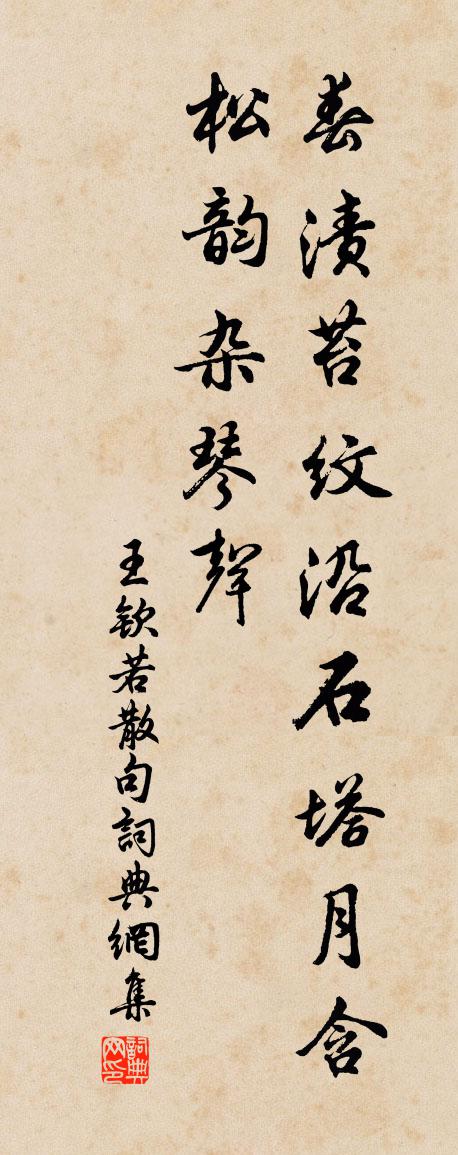 春渍苔纹沿石塔月含
松韵杂琴聲
王钦若散句詞典網集
詞典网印